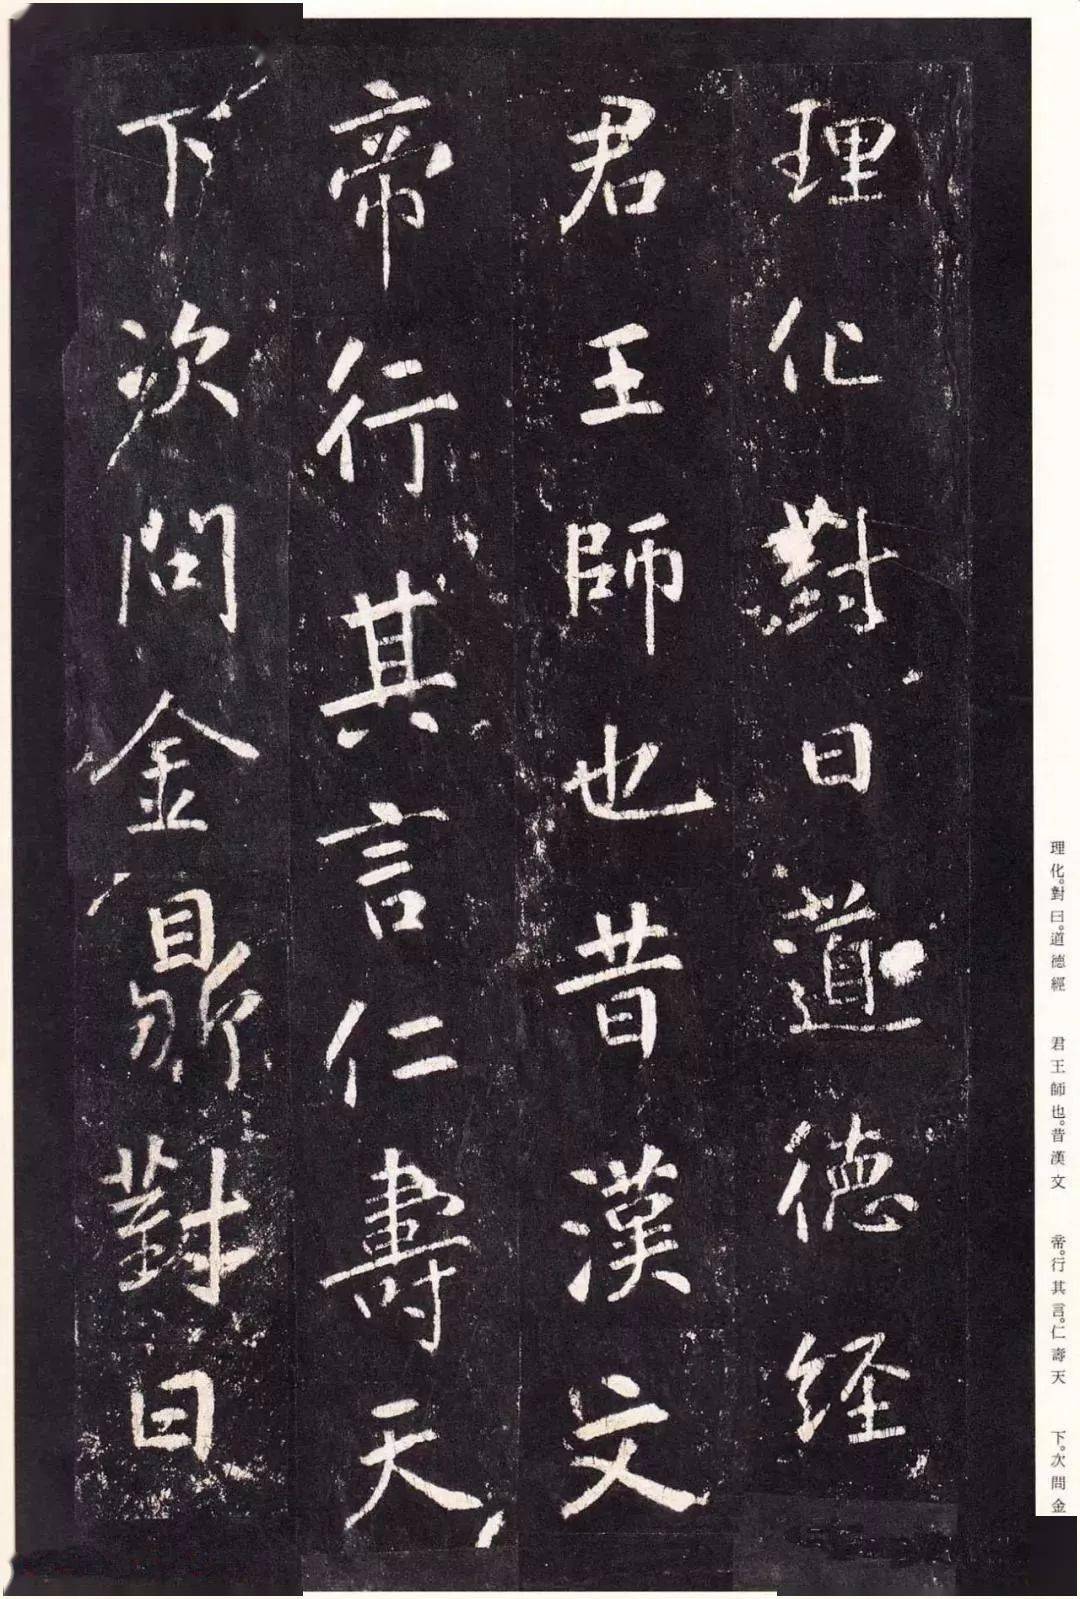 理化對曰道德經
君王師也昔漢文
帝行其言仁壽天
下次問金鼎對曰
理化。對曰。道德經　君王師也。昔漢文　帝。行其言。仁壽天　下。次問金